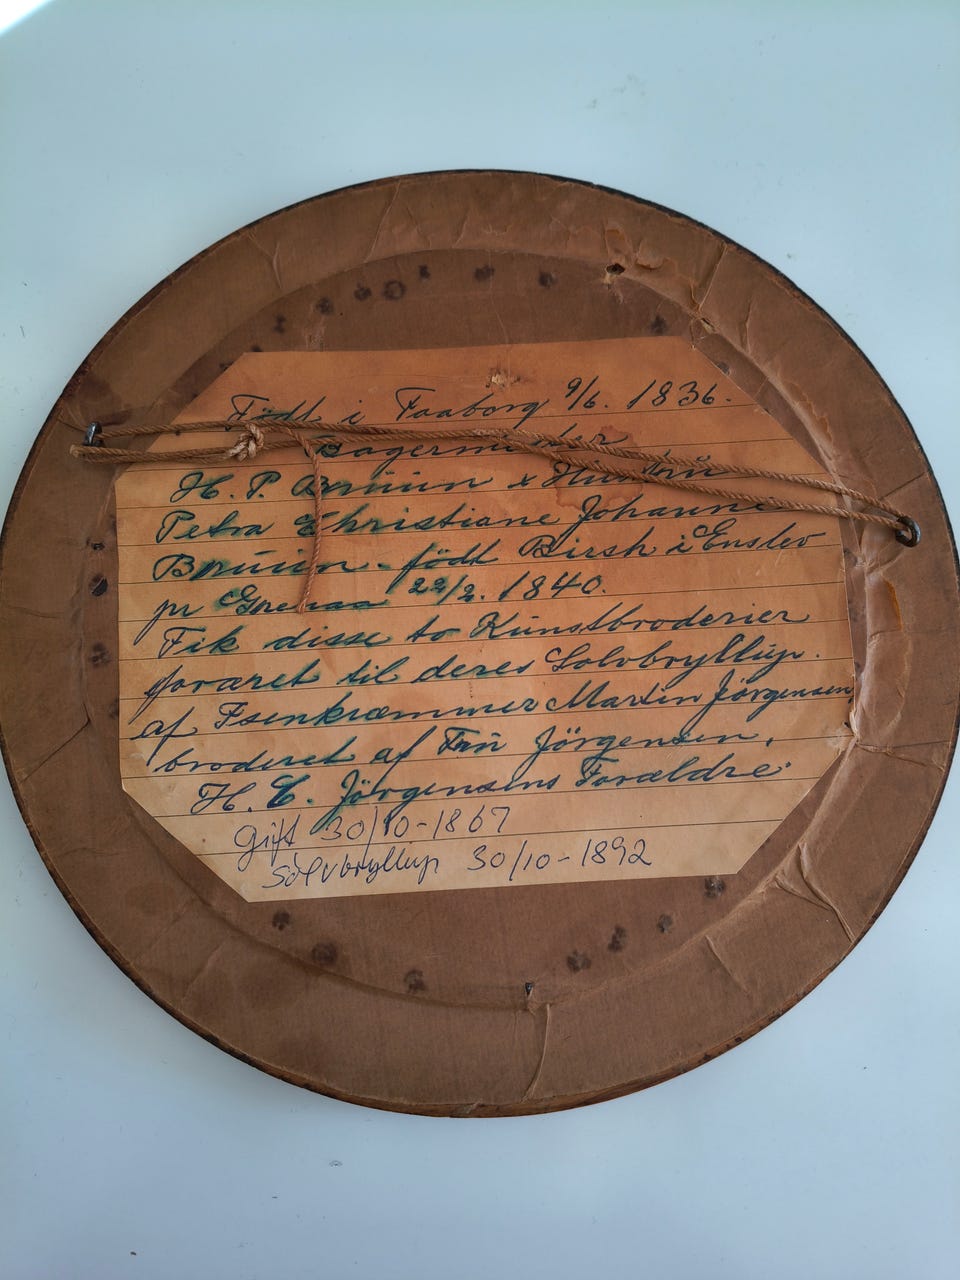 Født i Faaborg 9/6. 1836.
Bagermester
H. P. Brüün & Hustrü
Petra Christiane Johanne
Brüün - født Birsh i Enslev
pr Grenaa 22/2. 1840.
Fik disse to Künstbroderier
foræret til deres Solvbryllüp.
af Isenkræmmer Martin Jørgensen
broderet af Frü Jörgensen,
H. C. Jörgensens Forældre.
Gift 30/10-1867
Sölvbryllup 30/10-1892